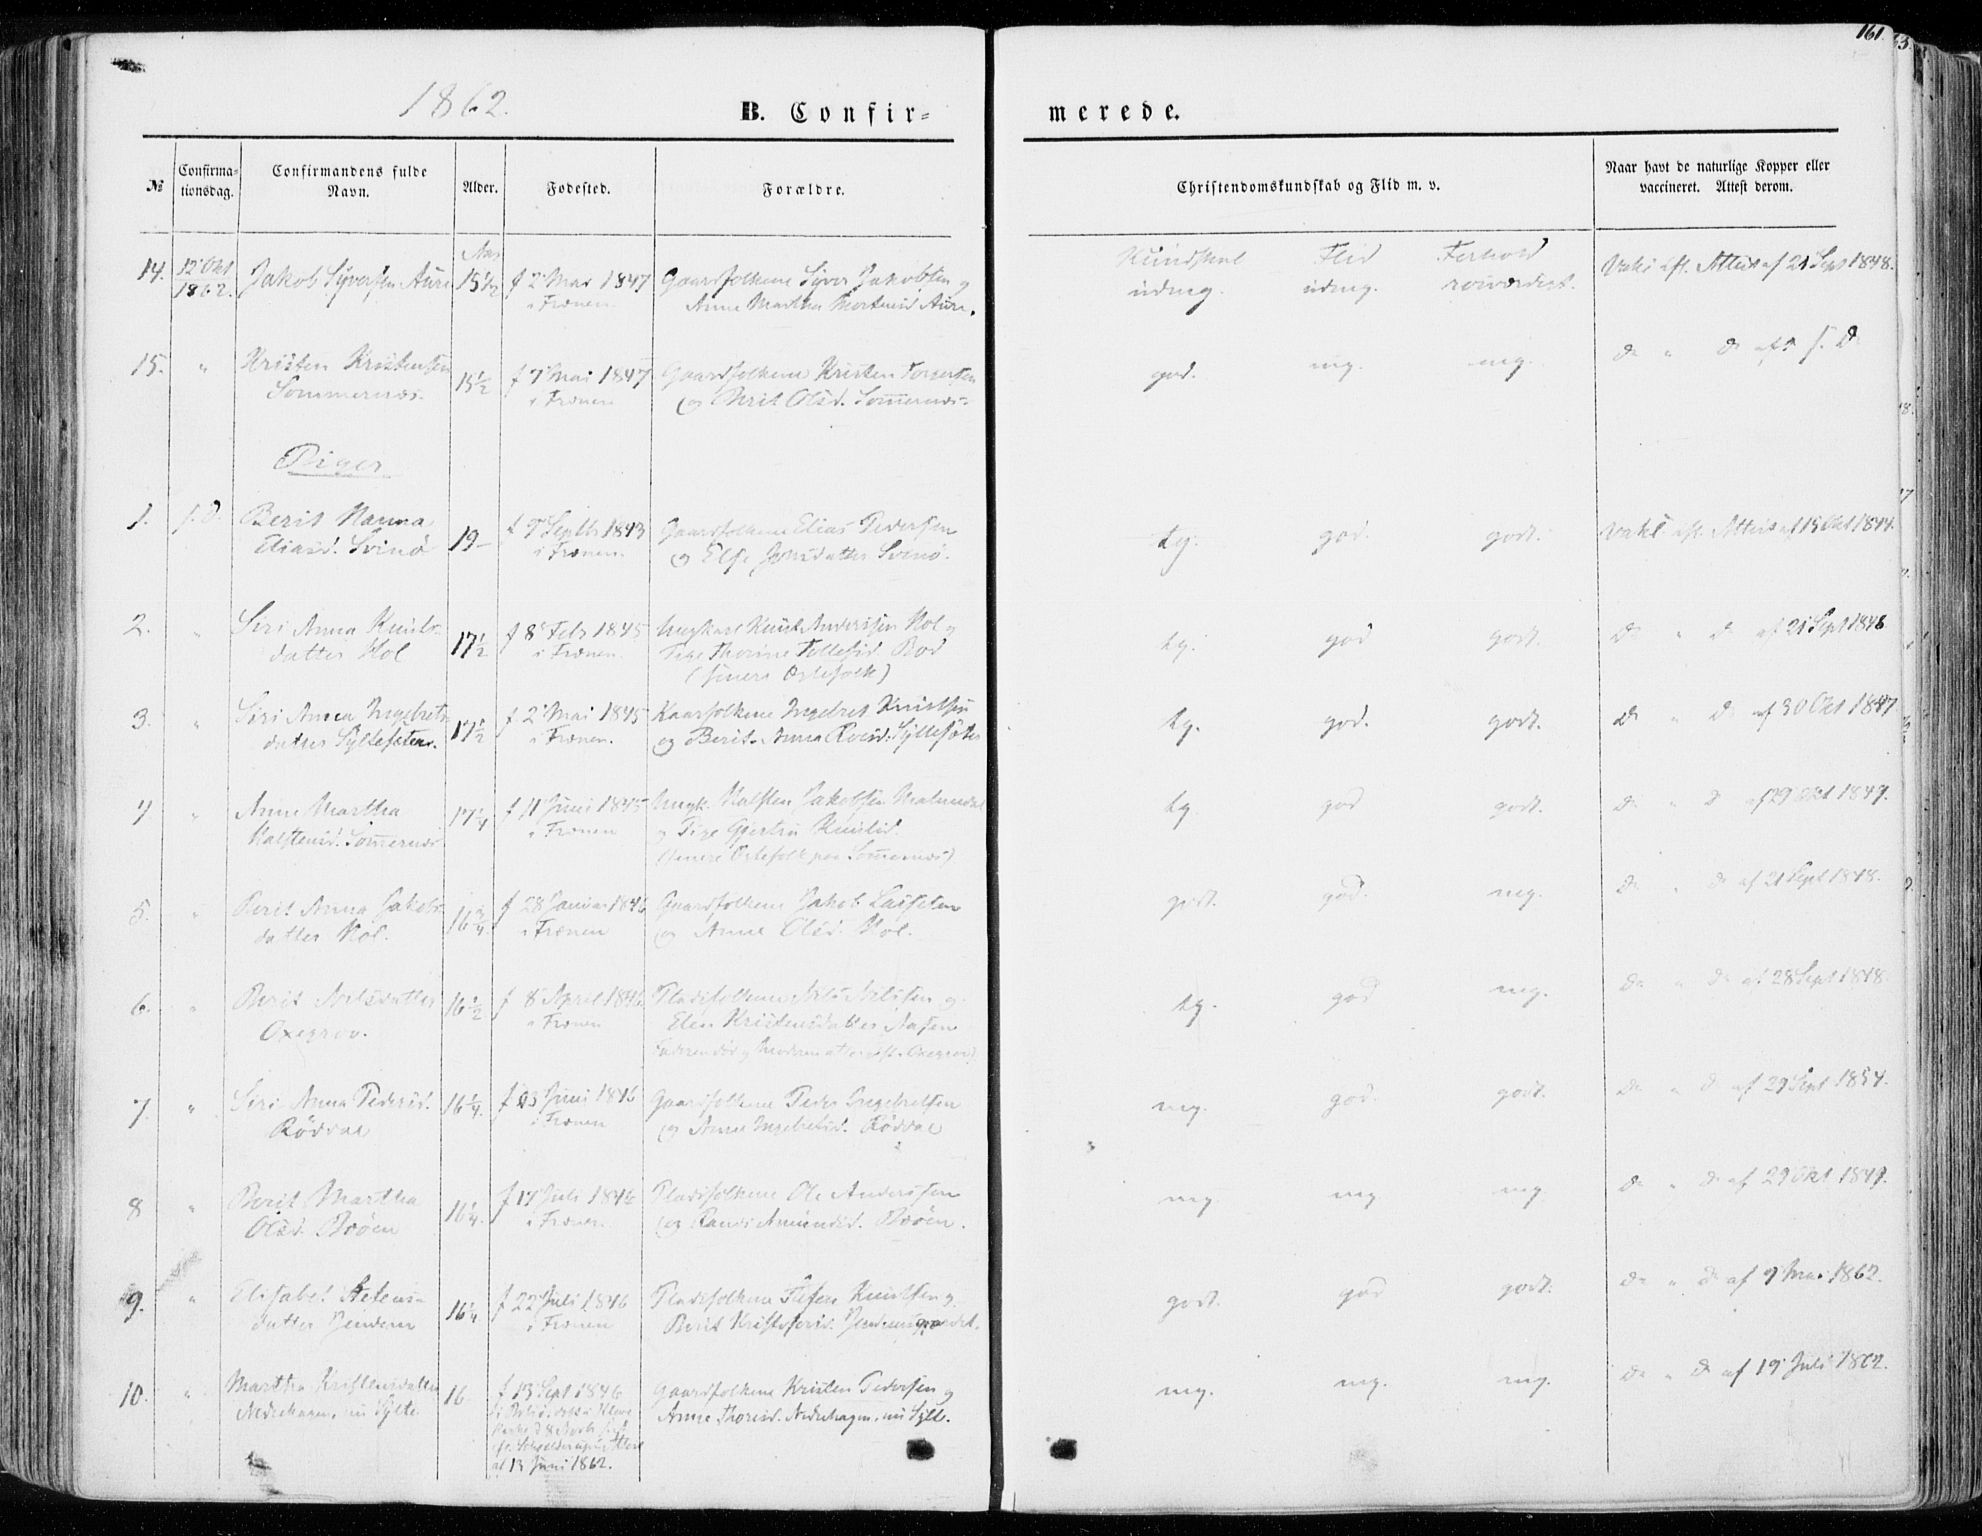 161.
1862.
B. Confir=
merede.
№
Confirma=
tionsdag.
Confirmandens fulde
Navn.
Alder.
Fødested.
Forældre.
Christendomskundskab og Flid m. v.
Naar havt de naturlige Kopper eller
vaccineret. Attest derom.
14.
12 Okt
1862.
Jakob Syversen Aure
Aar
15 1/2
f 2 Mar 1847
i Frænen
Gaardfolkene Syver Jakobsen og
Anne Martha Aure.
Kundskab Flid Forhold
udmg. udmg.
Vaks eft. Attest af 21 Sept 1848.
15.
"
Kristen Kristensen
Sommernæs.
15 1/2
f 7 Mai 1847
i Frænen
Gaardfolkene Kristen
og Brit Olsd. Sommernæs
god. mg. meg.
Do " Do af s. D.
Piger
1.
s. d.
Berit Hanna
Eliasd. Svinø
19
f 9 Septbr 1843
i Frænen.
Gaardfolkene Elias Pedersen
og Else Jonsdatter Svinø.
tg. god. godt.
Vaks. eft. Attest af 15 Okt 1844.
2.
"
Siri Anna Knuds-
datter Hol
17 1/2
f 8 Feb 1845
i Frænen.
Ungkarl Knud Andersen Hol og
Pige Thorine Bod
(senere Ektefolk)
tg. god godt.
Do " Do af 21 Sept 1848
3.
"
Siri Anna Ingebrets-
datter Syltesæter.
17 1/2
f 2 Mai 1845
i Frænen.
Kaarfolkene Ingebret Knudsen
og Berit Anna Syltesæter
tg. god. godt.
Do " Do af 30 Okt 1847
4
"
Anne Martha
Halstensd. Sommernæs
17 1/4
f 11 Juni 1845
i Frænen
Ungk. Halsten Jakobsen
og Pige Gjertru Knudsd.
(senere Ektefolk paa Sommernæs)
tg god godt.
Do " Do af 29 Okt 1849.
5.
"
Berit Anna Jakobs-
datter Hol.
16 3/4
f 28 Januar 1846
i Frænen
Gaardfolkene Jakob Lassesen
og Anne Olsd. Hol.
godt. god. meg.
Do " Do af 21 Sept 1848.
6.
"
Berit Nilsdatter
Oxegrov.
16 1/2
f 8 April 1846
i Frænen
Pladsfolkene Nils Nilssen og
Elen Kristensdatter Aasen
tg. god meg.
Do " Do af 28 Sept 1848.
7.
"
Siri Anna Pedersd.
Röddal
16 1/4.
f 23 Juni 1846
i Frænen
Gaardfolkene Peder Ingebretsen
og Anne Ingebretsd. Röddal
meg. god. godt.
Do " Do af 29 Sept 1854.
8
"
Berit Martha
Olsd. Bøen
16 1/4.
f 17 Juli 1846
i Frænen
Pladsfolkene Ole Anderssen
og Randi Amundsd. Bøen.
meg meg meg
Do " Do af 29 Okt 1849.
9.
"
Elisabet Stefens-
datter Jendem
16 1/4
f 22 Juli 1846
i Frænen
Pladsfolkene Stefen Knudsen og
Berit Kristofersd.
godt. god godt.
Do " Do af 9 Mai 1862.
10.
"
Martha Kristensdatter
Nedrehagen, nu Sylte
16
f 13 Sept 1846
af 13 Juni 1862.
Gaardfolkene Kristen Pedersen og
Anne Thoresd. Nedrehagen, nu Sylte.
meg. meg. meg.
Do " Do af 19 Juli 1862.